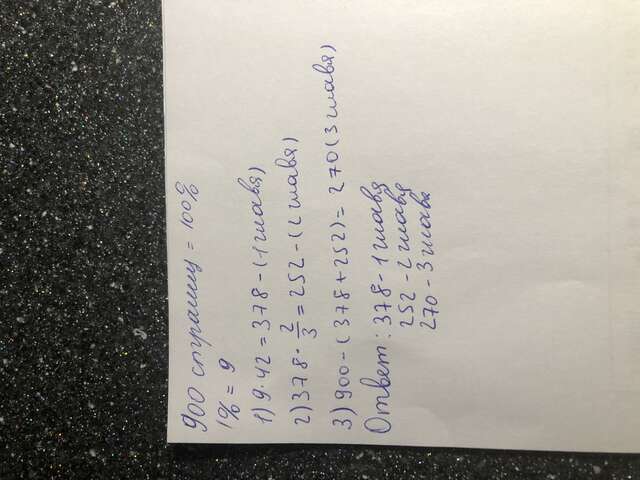 900 страниц = 100%
1% = 9
1) 9·42 = 378 - (1 глава)
2) 378 · 2/3 = 252 - (2 глава)
3) 900 - (378 + 252) = 270 (3 глава)
Ответ: 378 - 1 глава
252 - 2 глава
270 - 3 глава